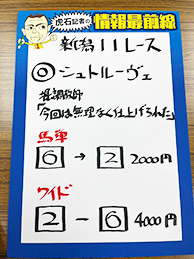 虎石記者の
情報最前線
新潟11レース
◎シュトルーヴェ
「今回は無理なく仕上げられた」
馬単
6 → 2 2000円
ワイド
2 − 6 4000円